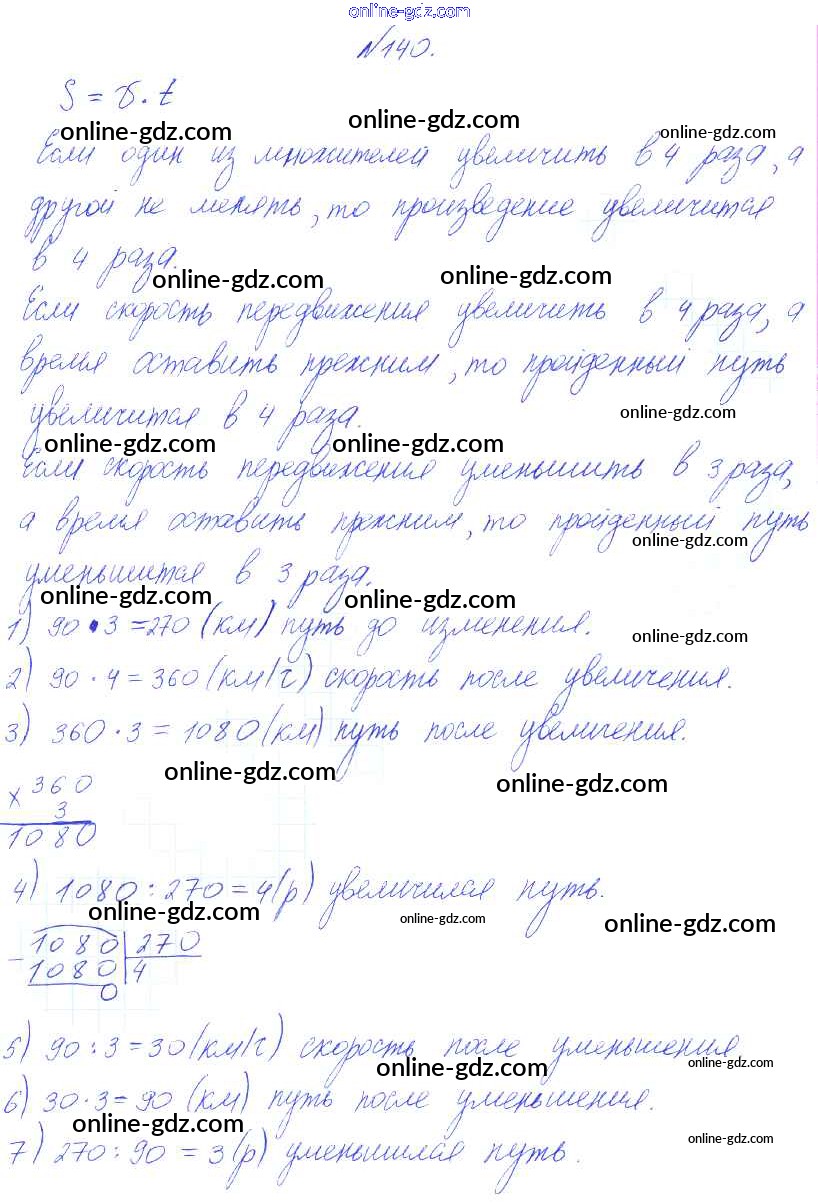 online-gdz.com
№140.
S = v · t
online-gdz.com online-gdz.com online-gdz.com
Если один из множителей увеличить в 4 раза, а
другой не менять, то произведение увеличится
в 4 раза.
online-gdz.com online-gdz.com
Если скорость передвижения увеличить в 4 раза, а
время оставить прежним, то пройденный путь
увеличится в 4 раза.
online-gdz.com
online-gdz.com online-gdz.com
Если скорость передвижения уменьшить в 3 раза,
а время оставить прежним, то пройденный путь
online-gdz.com
уменьшится в 3 раза.
online-gdz.com online-gdz.com
1) 90 · 3 = 270 (км) путь до изменения.
online-gdz.com
2) 90 · 4 = 360 (км/ч) скорость после увеличения.
3) 360 · 3 = 1080 (км) путь после увеличения.
online-gdz.com online-gdz.com
× 360
3
1080
4) 1080 : 270 = 4 (р) увеличился путь.
online-gdz.com online-gdz.com online-gdz.com
- 1080 270
1080 4
0
5) 90 : 3 = 30 (км/ч) скорость после уменьшения
online-gdz.com online-gdz.com
6) 30 · 3 = 90 (км) путь после уменьшения.
online-gdz.com online-gdz.com
7) 270 : 90 = 3 (р) уменьшился путь.